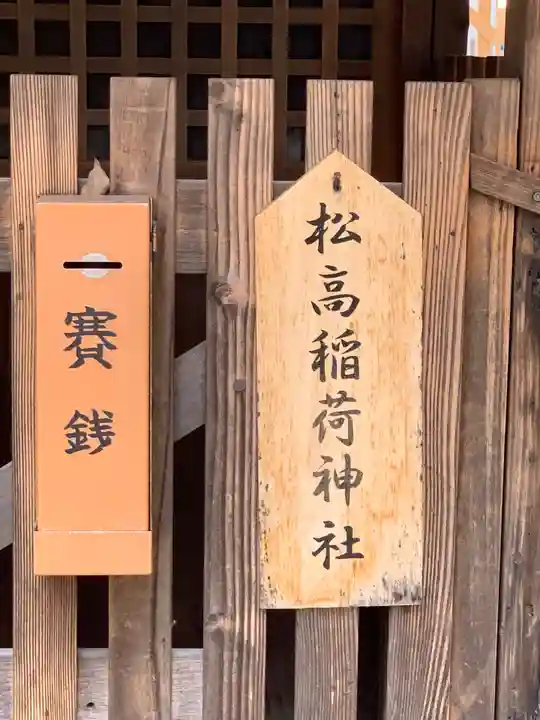 賽銭
松高稲荷神社